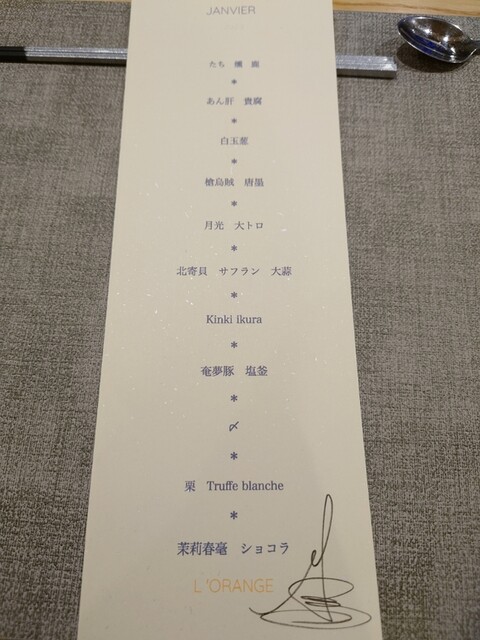 JANVIER
たち 燻 鹿
あん肝 貴腐
白玉葱
槍烏賊 唐墨
月光 大トロ
北寄貝 サフラン 大蒜
Kinki ikura
奄夢豚 塩釜
〆
栗 Truffe blanche
茉莉春毫 ショコラ
L'ORANGE